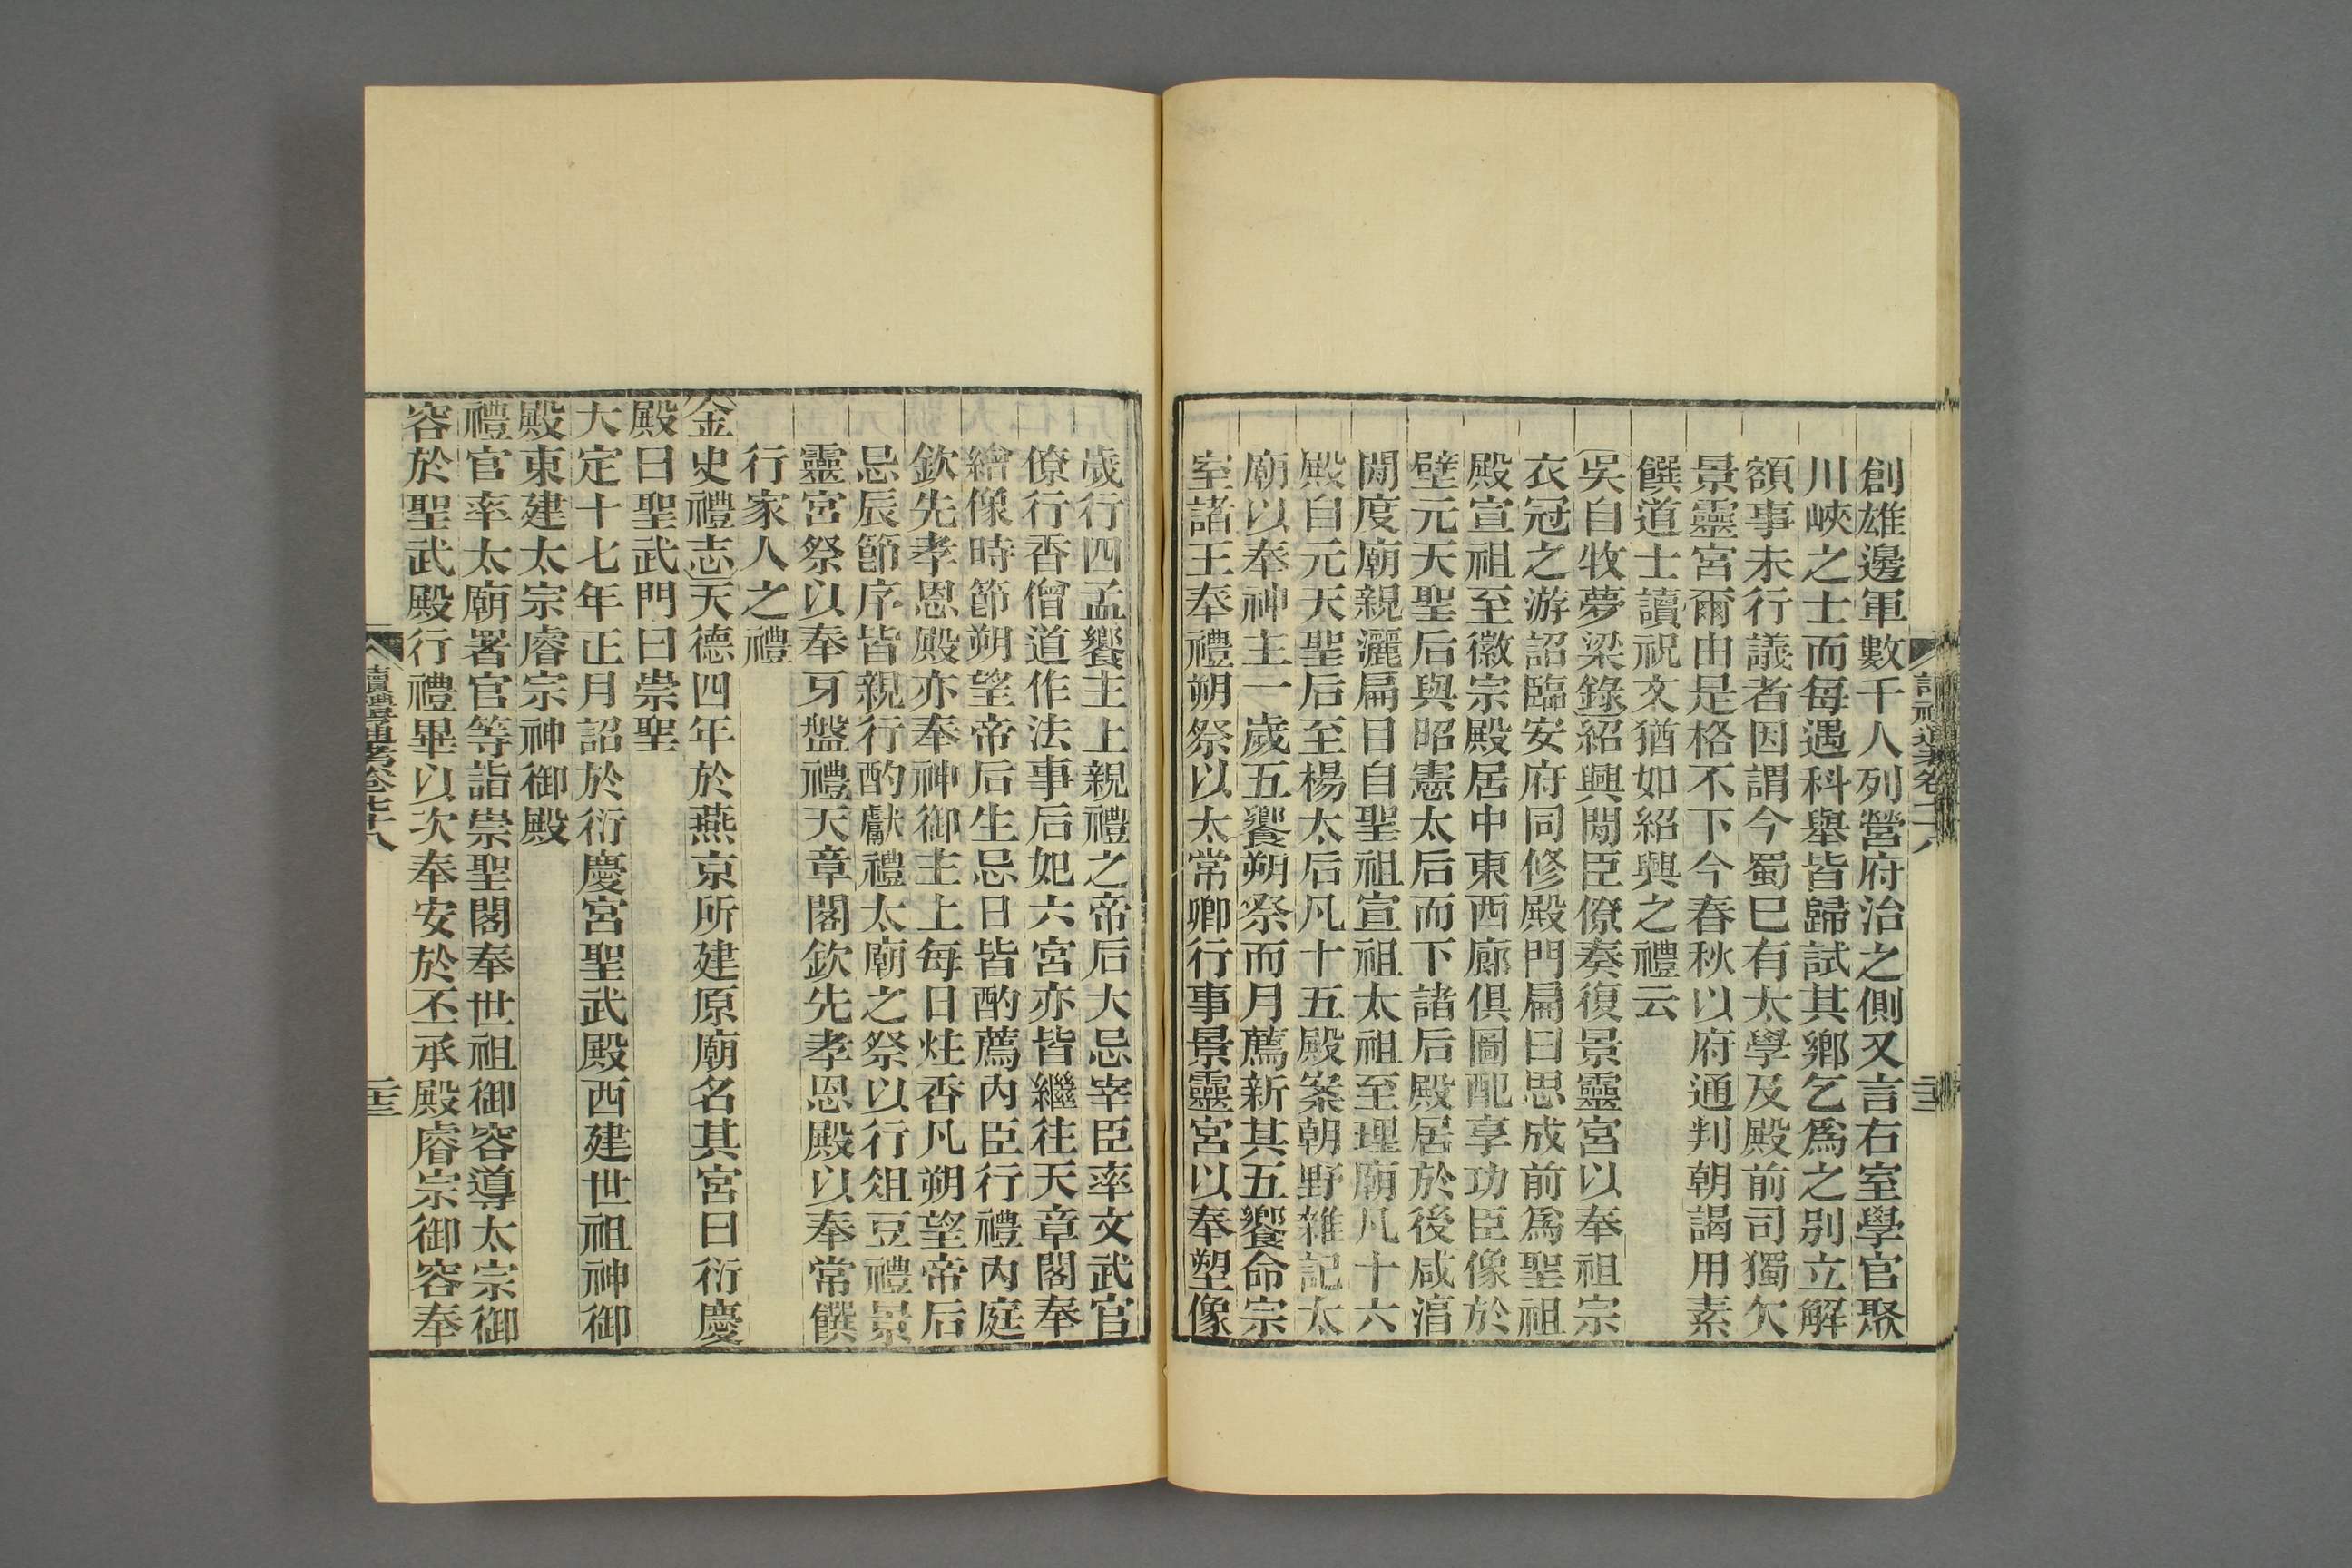 創雄邊軍數千人列營府治之側又言右室學官聚
川峽之士而每遇科舉皆歸試其鄉乞爲之别立解
額事未行議者因謂今蜀巳有太學及殿前司獨欠
景靈宮爾由是格不下今春秋以府通判朝謁用素
饌道士讀祝文猶如紹興之禮云
吳自牧夢梁錄紹興間臣僚奏復景靈宮以奉祖宗
衣冠之游詔臨安府同修殿門扁曰思成前爲聖祖
殿宣祖至徽宗殿居中東西廊俱圖配享功臣像於
壁元天聖后與昭憲太后而下諸后殿居於後咸淳
間度廟親灑扁目自聖祖宣祖太祖至理廟凡十六
殿自元天聖后至楊太后凡十五殿案朝野雜記太
廟以奉神主一歲五饗朔祭而月薦新其五饗命宗
室諸王奉禮朔祭以太常卿行事景靈宮以奉塑像
歲行四孟饗主上親禮之帝后大忌宰臣率文武官
僚行香僧道作法事后妃六宮亦皆繼往天章閣奉
繪像時節朔望帝后生忌日皆酌薦內臣行禮內庭
欽先孝恩殿亦奉神御主上每日炷香凡朔望帝后
忌辰節序皆親行酌獻禮太廟之祭以行俎豆禮景
靈宮祭以奉牙盤禮天章閣欽先孝恩殿以奉常饌
行家人之禮
金史禮志天德四年於燕京所建原廟名其宮曰衍慶
殿曰聖武門曰崇聖
大定十七年正月詔於衍慶宮聖武殿西建世祖神御
殿東建太宗睿宗神御殿
禮官率太廟署官等詣崇聖閣奉世祖御容導太宗御
容於聖武殿行禮畢以次奉安於丕承殿睿宗御容奉
讀禮通考卷七十八
二十三